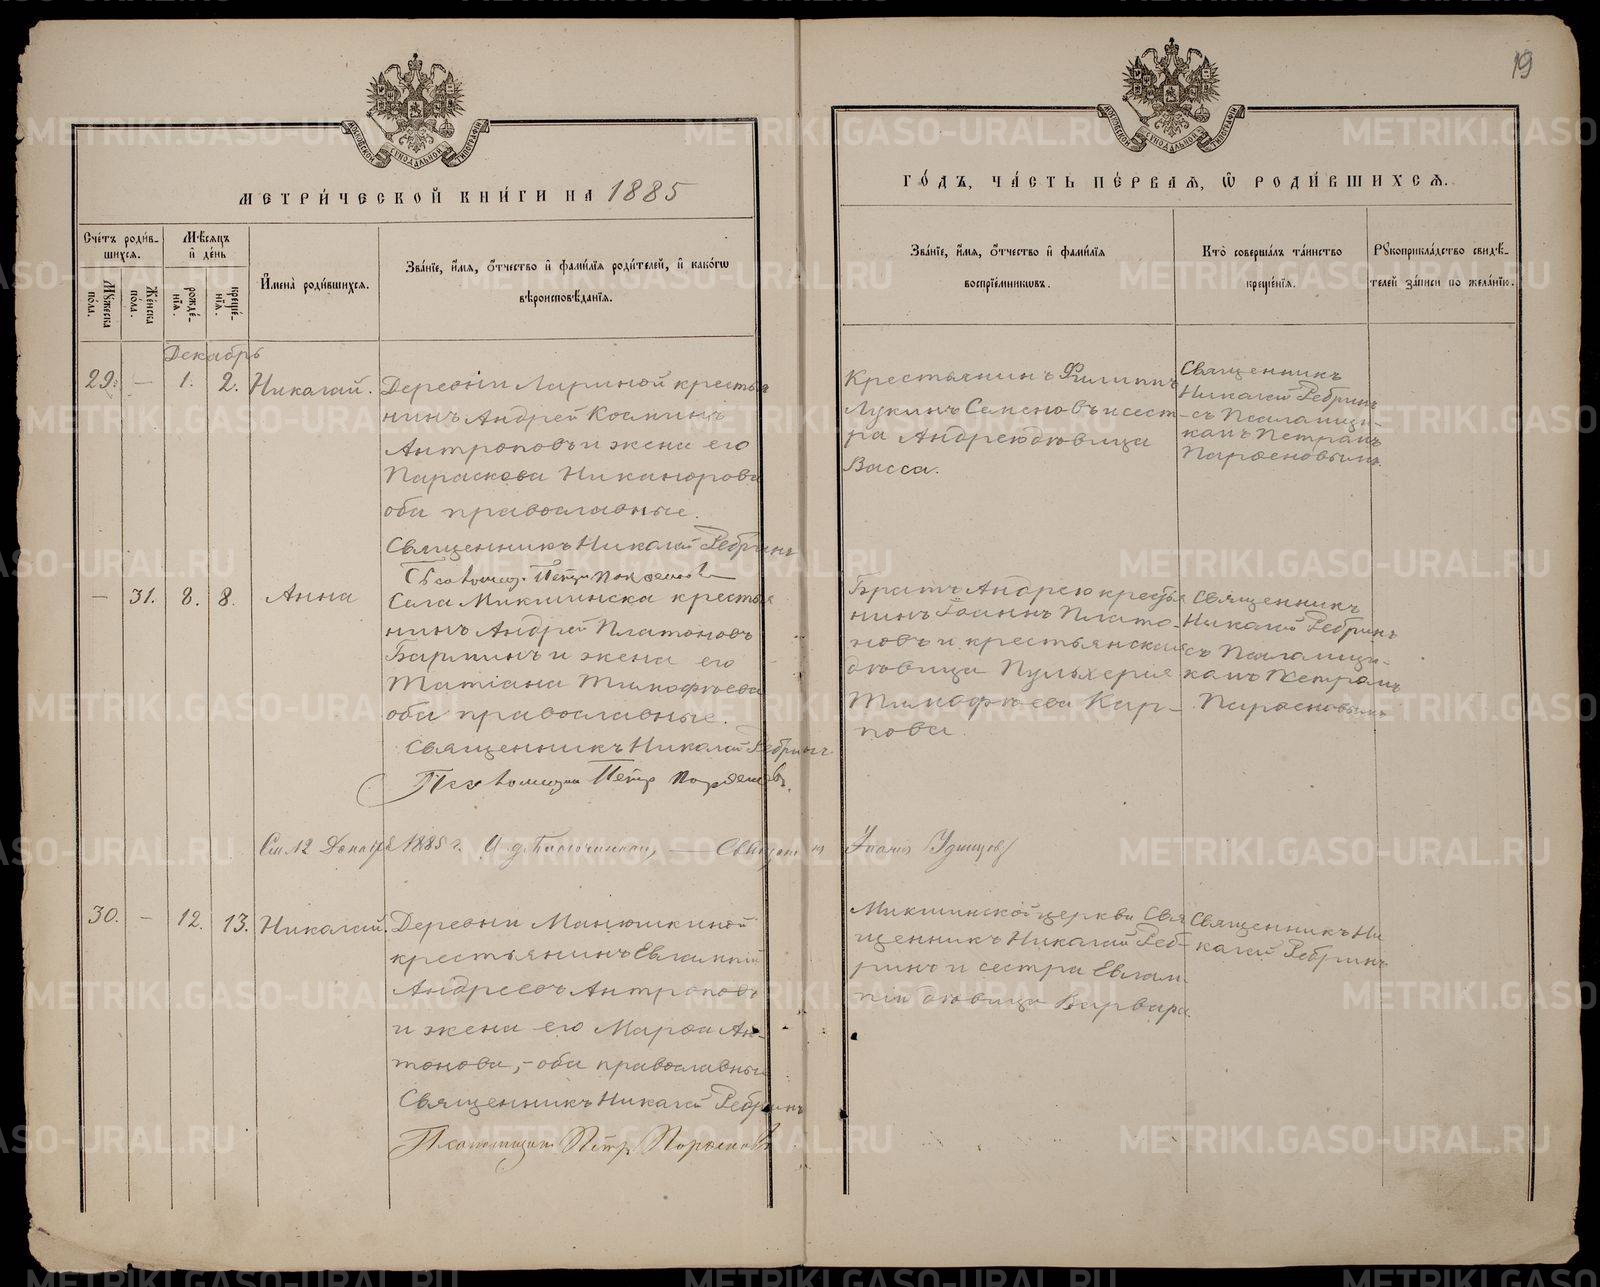 19
МЕТРИ́ЧЕСКОЙ КНИ́ГИ НА 1885
ГО́ДЪ, ЧА́СТЬ ПЕ́РВАЯ, Ѽ РОДИ́ВШИХСЯ.
Сче́тъ роди́в-
шихся.
Мѣ́сяцъ
и҆ де́нь
Мꙋ́жеска
пола.
Же́нска
пола.
рожде́-
нїѧ.
креще́-
нїѧ.
И҆мена̀ роди́вшихся.
Зва́нїе, и҆́мя, ѻ҆́тчество и҆ фами́лїя роди́телей, и҆ како́гѡ
вѣроисповѣ́данїя.
Зва́нїе, и҆́мя, ѻ҆́тчество и҆ фами́лїя
воспрїе́мникѡвъ.
Кто̀ соверша́лъ та́инство
креще́нїя.
Рꙋкоприкла́дство свидѣ́-
телей за́писи по жела́нїю.
Декабрь
29. — 1. 2. Николай.
Деревни Лариной крестья
нинъ Андрей Косминъ
Антроповъ и жена его
Параскева Никанорова
оба православные.
Священникъ Николай Ребринъ
Крестьянинъ Филиппъ
Лукинъ Семеновъ и сест-
ра Андрею дѣвица
Васса.
Священникъ
Николай Ребринъ
съ Псаломщи-
комъ Петромъ
Парѳеновымъ.
— 31. 8. 8. Анна
Села Микшинска крестья
нинъ Андрей Платоновъ
Барминъ и жена его
Татіана Тимофѣева
оба православные.
Священникъ Николай Ребринъ
Псаломщик Петр Парѳенов.
Братъ Андрею крестья
нинъ Іоаннъ Плато-
новъ и крестьянская
дѣвица Пульхерія
Тимофѣева Кар-
пова.
Священникъ
Николай Ребринъ
съ Псаломщи-
комъ Петромъ
Парѳеновымъ
12 Декабря 1885 г. И. д. Благочиннаго, — Священник
30. — 12. 13. Николай.
Деревни Манюшкиной
крестьянинъ Евлампий
Андреевъ Антроповъ
и жена его Марѳа Ан-
тонова, – оба православные
Священникъ Николай Ребринъ
Псаломщик Петр Парѳенов
Микшинской церкви Свя
щенникъ Николай Реб-
ринъ и сестра Евлам-
пія дѣвица Варвара.
Священникъ Ни
колай Ребринъ
METRIKI.GASO-URAL.RU